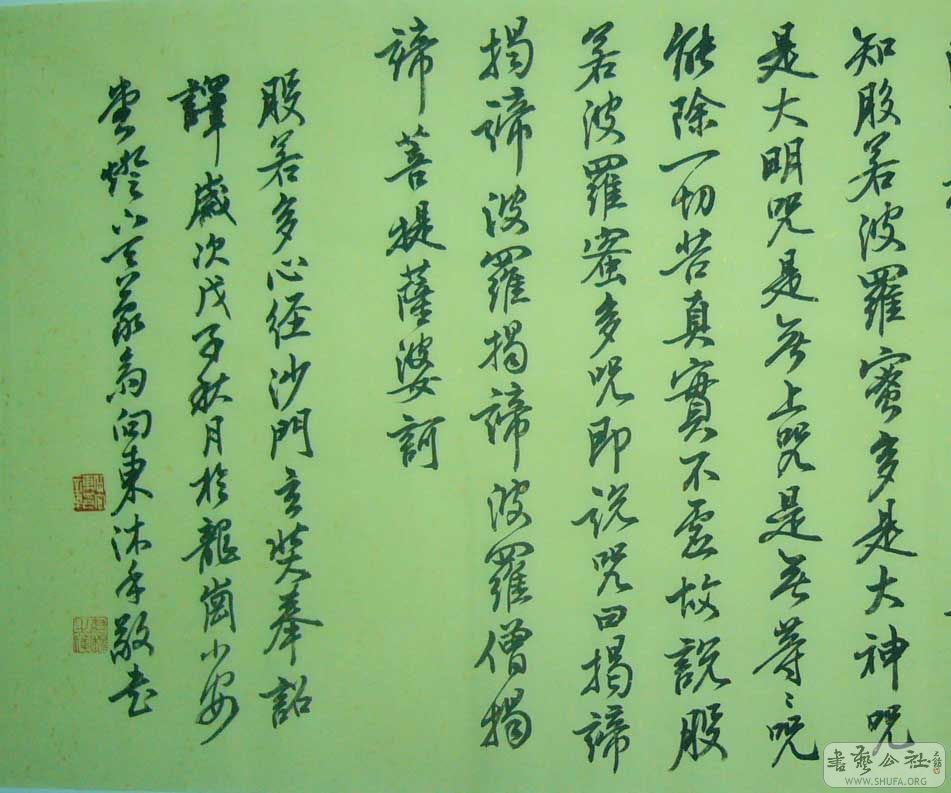 知般若波羅蜜多是大神咒
是大明咒是无上咒是无等々咒
能除一切苦真實不虛故説般
若波羅蜜多咒即说咒曰揭諦
揭諦波羅揭諦波羅僧揭
諦菩提薩婆訶
般若多心経沙門玄奘奉詔
譯歲次戊子秋月於龍崗小安
堂燈下天蒙高向東沐手敬书
書藝公社
WWW.SHUFA.ORG